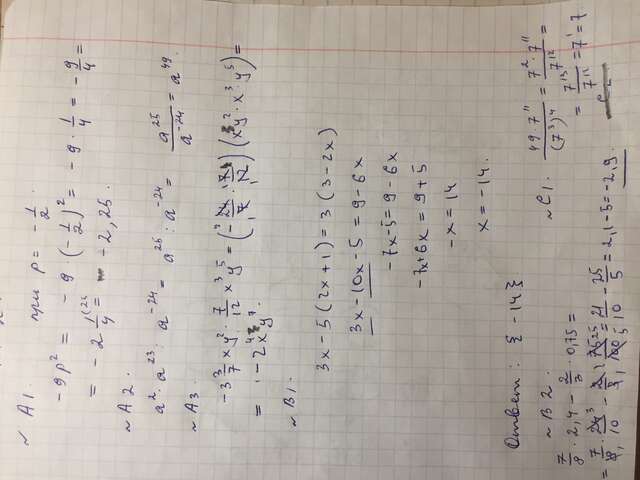 ~ A1. при p = - 1/2.
-9p² = -9 · (-1/2)² = -9 · 1/4 = - 9/4 =
= -2 1/4 = -2,25.
~ A2.
a² · a²³ : a⁻²⁴ = a²⁵ : a⁻²⁴ = a²⁵/a⁻²⁴ = a⁴⁹.
~ A3
-3 3/7 xy² · 7/12 x³y⁵ = (- 24/7 · 7/12) (xy² · x³y⁵) =
= -2x⁴y⁷.
~ B1.
3x - 5(2x + 1) = 3(3 - 2x)
3x - 10x - 5 = 9 - 6x
-7x - 5 = 9 - 6x
-7x + 6x = 9 + 5
-x = 14
x = -14.
Ответ: {-14}
~ B2.
7/8 · 2,4 - 2/3 · 0,75 =
= 7/8 · 24/10 - 2/3 · 75/100 = 21/10 - 25/5 = 2,1 - 5 = -2,9.
~ C1. 49 · 7¹¹/(7³)⁴ = 7² · 7¹¹/7¹² =
= 7¹³/7¹² = 7¹ = 7.